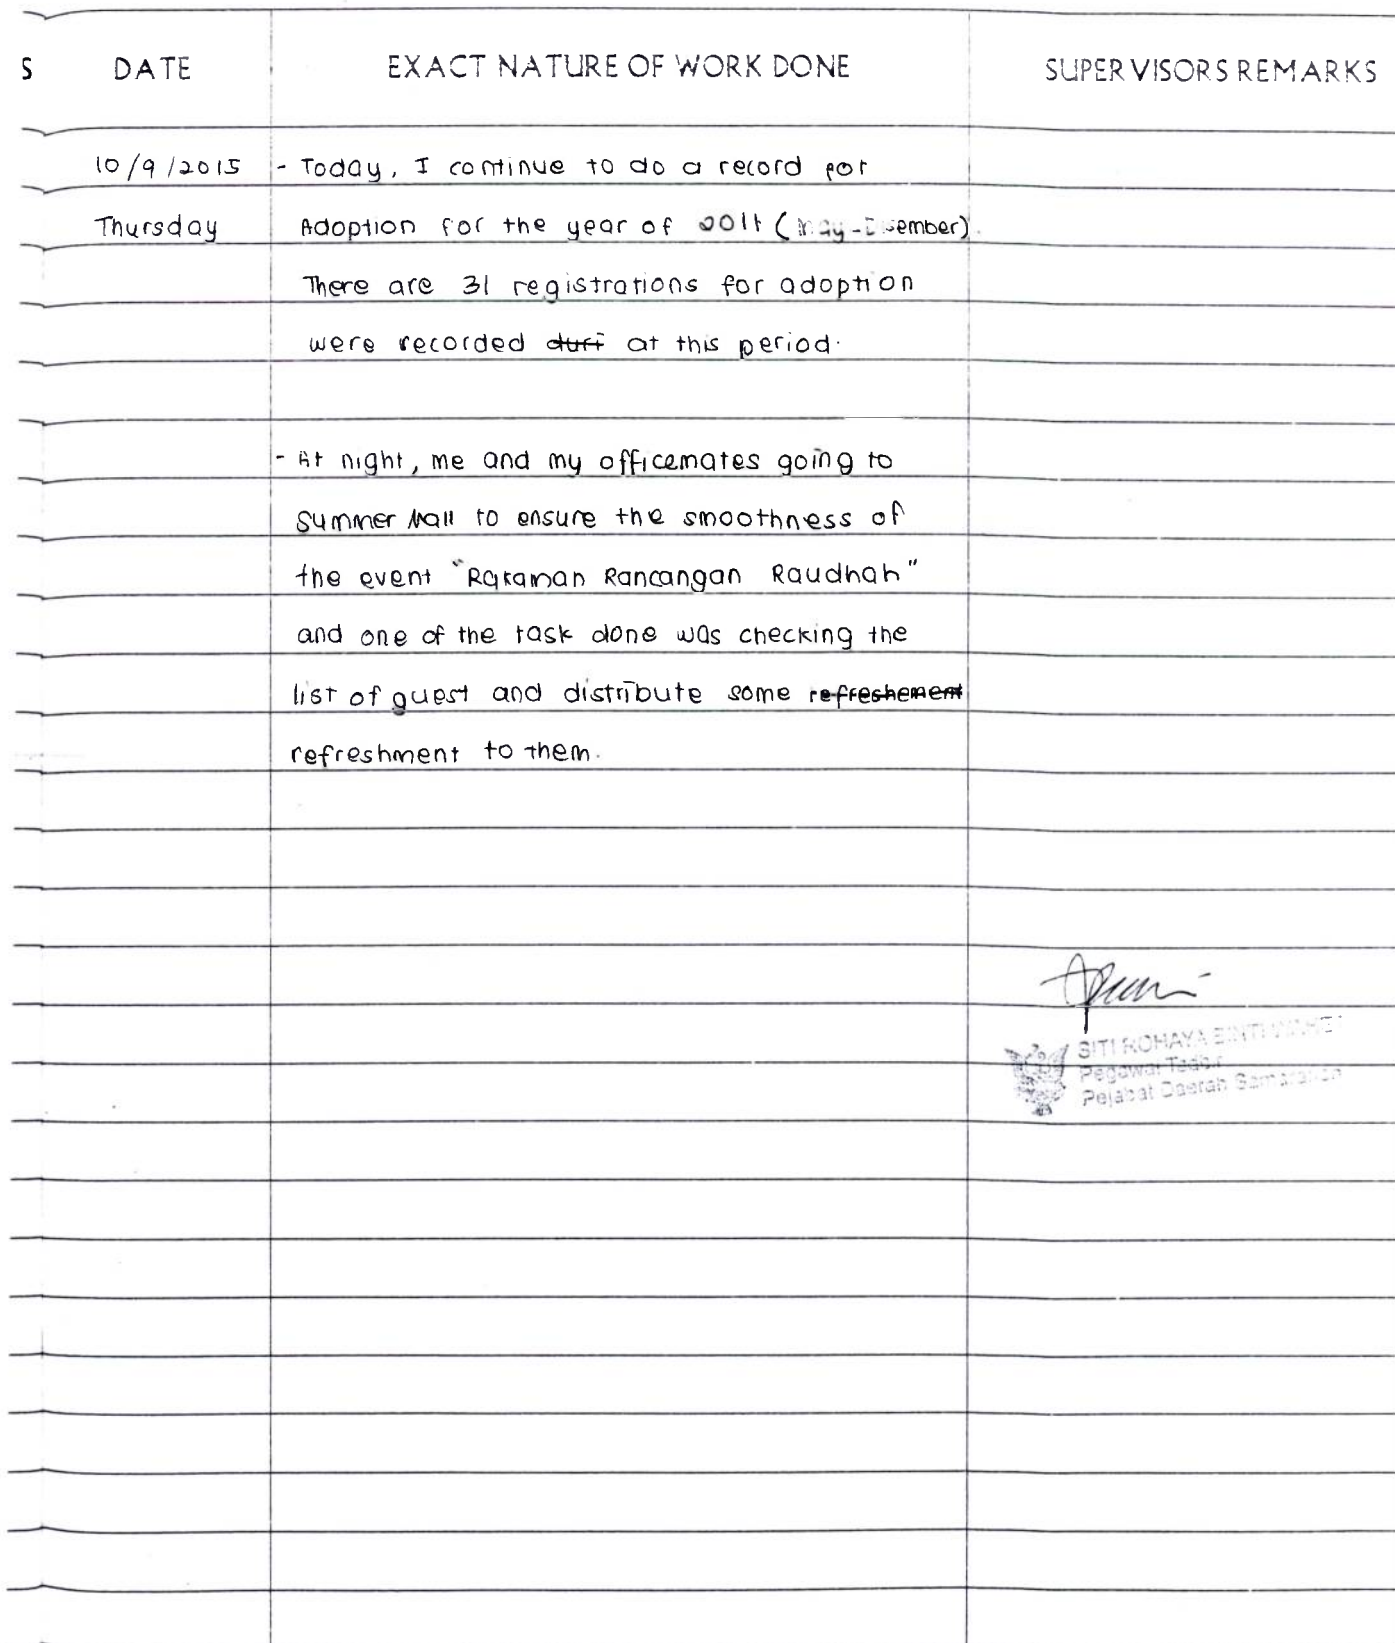 S DATE EXACT NATURE OF WORK DONE SUPERVISORS REMARKS
10/9/2015 - Today, I continue to do a record for
Thursday Adoption for the year of 2011 (May-Disember).
There are 31 registrations for adoption
were recorded duri at this period.
- At night, me and my officemates going to
Summer Mall to ensure the smoothness of
the event "Rakaman Rancangan Raudhah"
and one of the task done was checking the
list of guest and distribute some refreshement
refreshment to them.
SITI ROHAYA BINTI
Pegawai Tadbir
Pejabat Daerah Samarahan